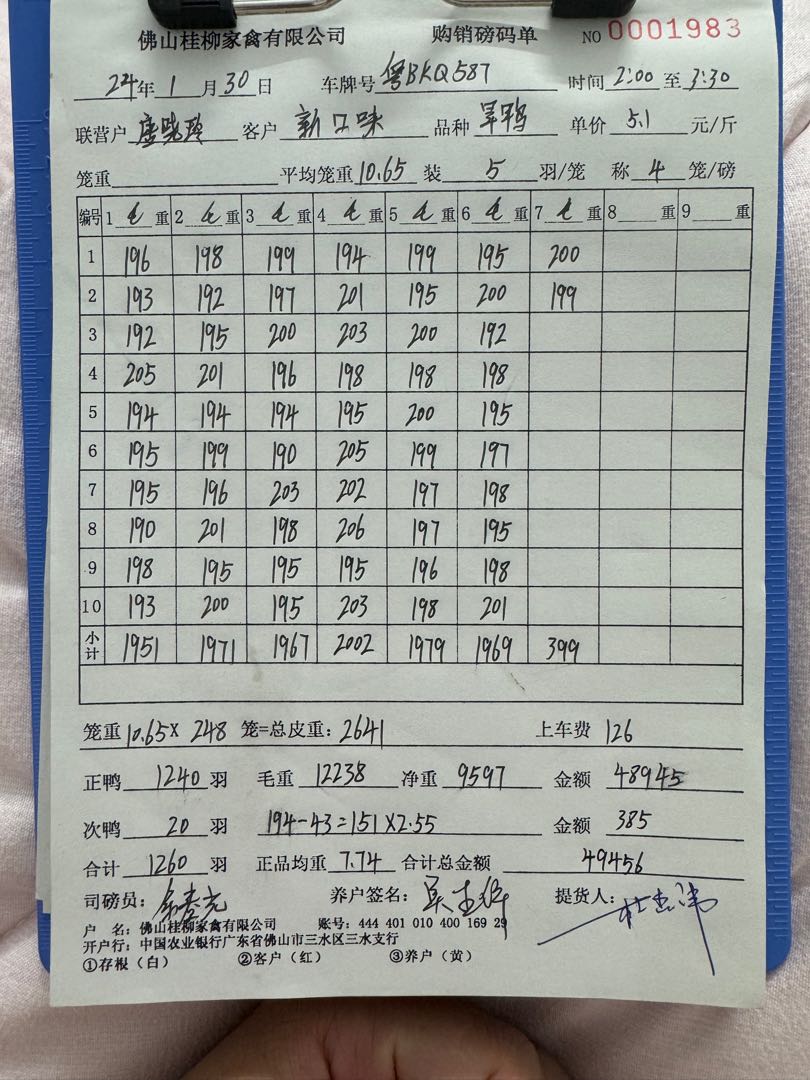 佛山桂柳家禽有限公司 购销磅码单 NO 0001983
24年 1 月 30 日 车牌号 粤BKQ587 时间 2:00 至 3:30
联营户 客户 新口味 品种 单价 5.1 元/斤
笼重 平均笼重 10.65 装 5 羽/笼 称 4 笼/磅
编号 1 毛 重 2 毛 重 3 毛 重 4 毛 重 5 毛 重 6 毛 重 7 毛 重 8 重 9 重
1 196 198 199 194 199 195 200
2 193 192 197 201 195 200 199
3 192 195 200 203 200 192
4 205 201 196 198 198 198
5 194 194 194 195 200 195
6 195 199 190 205 199 197
7 195 196 203 202 197 198
8 190 201 198 206 197 195
9 198 195 195 195 196 198
10 193 200 195 203 198 201
小计 1951 1971 1967 2002 1979 1969 399
笼重 10.65 × 248 笼=总皮重: 2641 上车费 126
正鸭 1240 羽 毛重 12238 净重 9597 金额 48945
次鸭 20 羽 194-43=151×2.55 金额 385
合计 1260 羽 正品均重 7.74 合计总金额 49456
司磅员: 养户签名: 提货人:
户 名: 佛山桂柳家禽有限公司 账号: 444 401 010 400 169 29
开户行: 中国农业银行广东省佛山市三水区三水支行
①存根(白) ②客户(红) ③养户(黄)